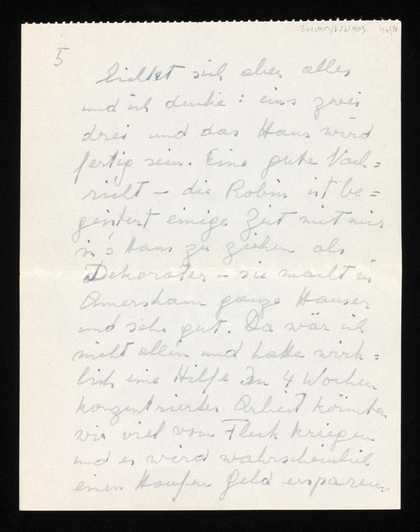 5
bildet sich aber alles
und ich denke: eins zwei
drei und das Haus wird
fertig sein. Eine gute Nach=
richt – die Robin ist be=
geistert einige Zeit mit mir
in's Haus zu ziehen als
Dekorator – sie macht in
Amersham ganze Häuser
und sehr gut. Da wär ich
nicht allein und hätte wirk=
lich eine Hilfe In 4 Wochen
konzentrierter Arbeit könnten
wir viel vom Fleck kriegen
und es wird wahrscheinlich
einen Haufen Geld ersparen